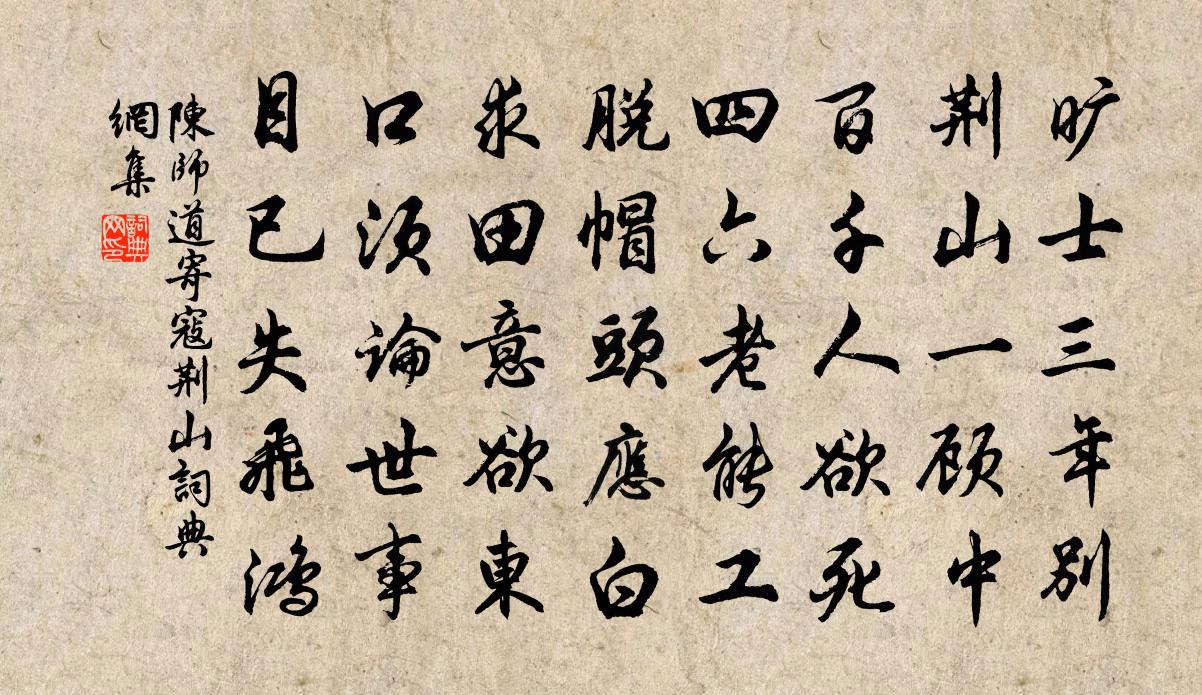 旷士三年别
荆山一顾中
百千人欲死
四六老能工
脱帽頭應白
求田意欲東
口须論世事
目已失飛鴻
陳師道寄寇荆山詞典
網集
詞典
网印